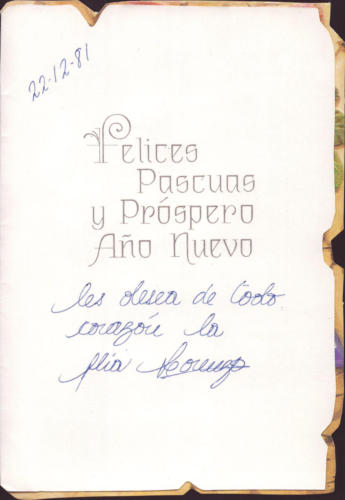 22-12-81
Felices
Pascuas
y Próspero
Año Nuevo
les desea de todo
corazón la
flia Lorenzo